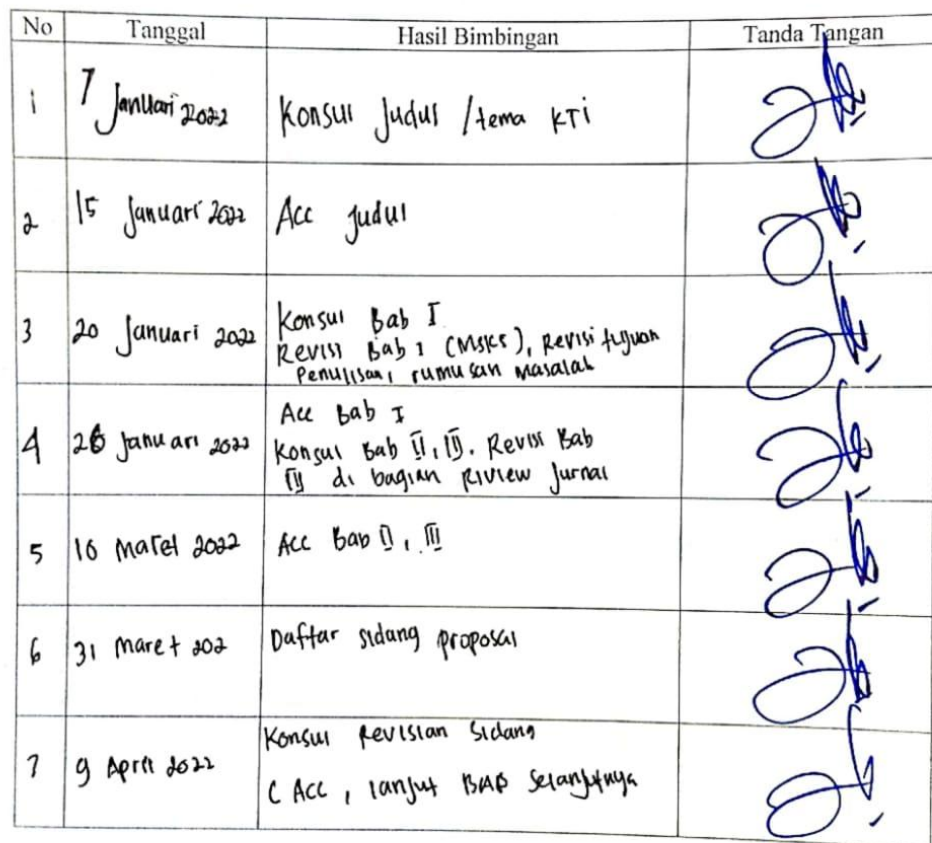 No Tanggal Hasil Bimbingan Tanda Tangan
1 7 Januari 2022 Konsul Judul /tema KTI
2 15 Januari 2022 Acc Judul
3 20 Januari 2022 Konsul Bab I
Revisi Bab I (MSKS), Revisi tujuan
Penulisan, rumusan Masalah
4 26 Januari 2022 Acc Bab I
Konsul Bab II, III. Revisi Bab
III di bagian Riview Jurnal
5 16 Maret 2022 Acc Bab II, III
6 31 Maret 202 Daftar sidang proposal
7 9 April 2022 Konsul Revisian Sidang
( Acc, lanjut BAB Selanjutnya